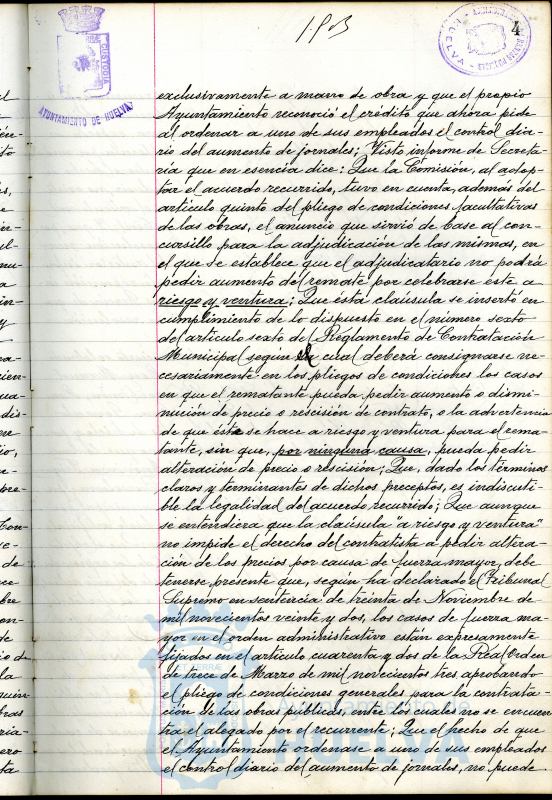 4
AYUNTAMIENTO DE HUELVA
exclusivamente a mano de obra y que el propio
Ayuntamiento reconoció el crédito que ahora pide
al ordenar a uno de sus empleados el control dia-
rio del aumento de jornales; Visto informe de Secreta-
ría que en esencia dice: Que la Comisión, al adop-
tar el acuerdo recurrido, tuvo en cuenta, además del
artículo quinto del pliego de condiciones facultativas
de las obras, el anuncio que sirvió de base al con-
cursillo para la adjudicación de las mismas, en
el que se establece que el adjudicatario no podrá
pedir aumento del remate por celebrarse este a
riesgo y ventura; Que esta cláusula se insertó en
cumplimiento de lo dispuesto en el número sexto
del artículo sexto del Reglamento de Contratación
Municipal según el cual deberá consignarse ne-
cesariamente en los pliegos de condiciones los casos
en que el rematante pueda pedir aumento o dismi-
nución de precio o rescisión de contrato, o la advertencia
de que éste se hace a riesgo y ventura para el rema-
tante, sin que, por ninguna causa, pueda pedir
alteración de precio o rescisión; Que, dado los términos
claros y terminantes de dichos preceptos, es indiscuti-
ble la legalidad del acuerdo recurrido; Que aunque
se entendiera que la cláusula "a riesgo y ventura"
no impide el derecho del contratista a pedir altera-
ción de los precios por causa de fuerza mayor, debe
tenerse presente que, según ha declarado el Tribunal
Supremo en sentencia de treinta de Noviembre de
mil novecientos veinte y dos, los casos de fuerza ma-
yor en el orden administrativo están expresamente
fijados en el artículo cuarenta y dos de la Real Orden
de trece de Marzo de mil novecientos tres aprobando
el pliego de condiciones generales para la contrata-
ción de las obras públicas, entre los cuales no se encuen-
tra el alegado por el recurrente; Que el hecho de que
el Ayuntamiento ordenase a uno de sus empleados
el control diario del aumento de jornales, no puede
Ayuntamiento de
HUELVA